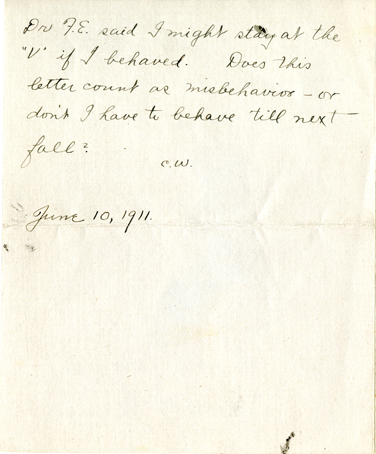 Dr F.E. said I might stay at the
"V" if I behaved. Does this
letter count as misbehavior – or
don't I have to behave till next
fall?
C.W.
June 10, 1911.